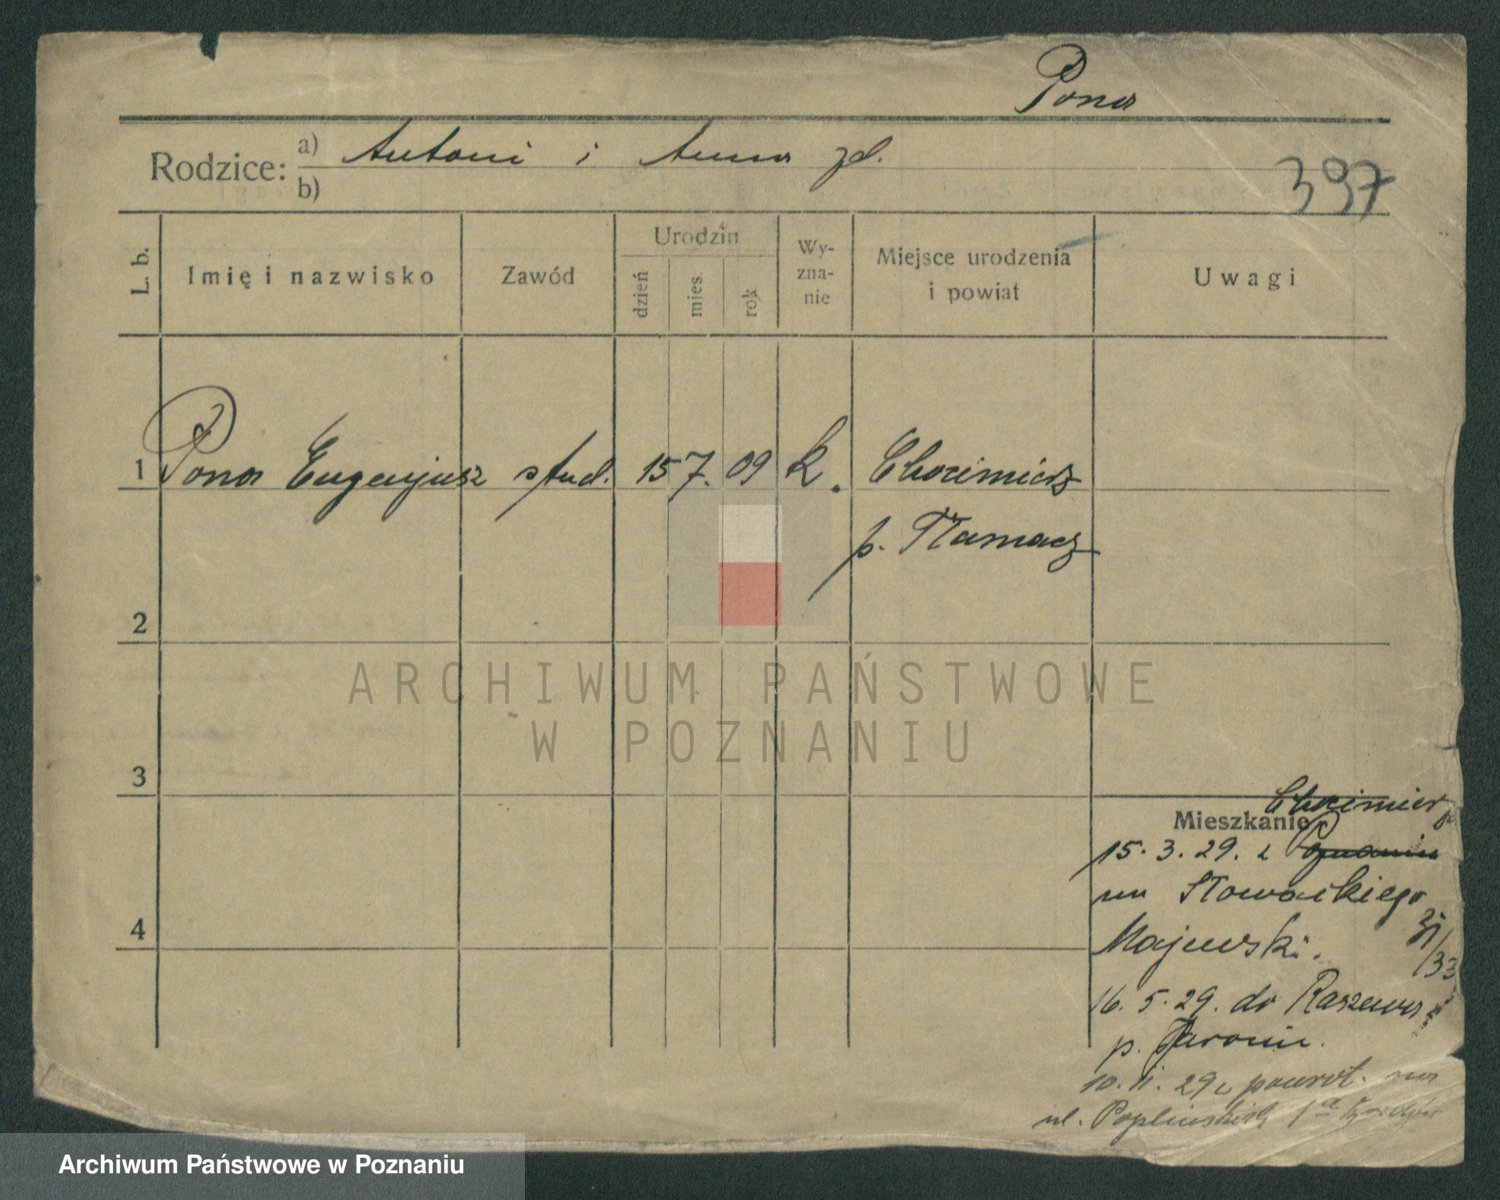 Pona
Rodzice: a) Antoni i Anna zd.
b)
397
L. b. Imię i nazwisko Zawód Urodzin dzień mies. rok Wy-zna-nie Miejsce urodzenia i powiat Uwagi
1 Pona Eugenjusz stud. 15 7. 09 k. Chocimierz
p. Tłumacz
2
ARCHIWUM PAŃSTWOWE
W POZNANIU
3
Chocimierz
Mieszkanie
15. 3. 29. z Poznania
na Słowackiego
Majewski. 31/33
16. 5. 29. do Raszewa
p. Jarocin.
4
10. 11. 29 z powrot. na
ul. Poplińskich 1a
Archiwum Państwowe w Poznaniu